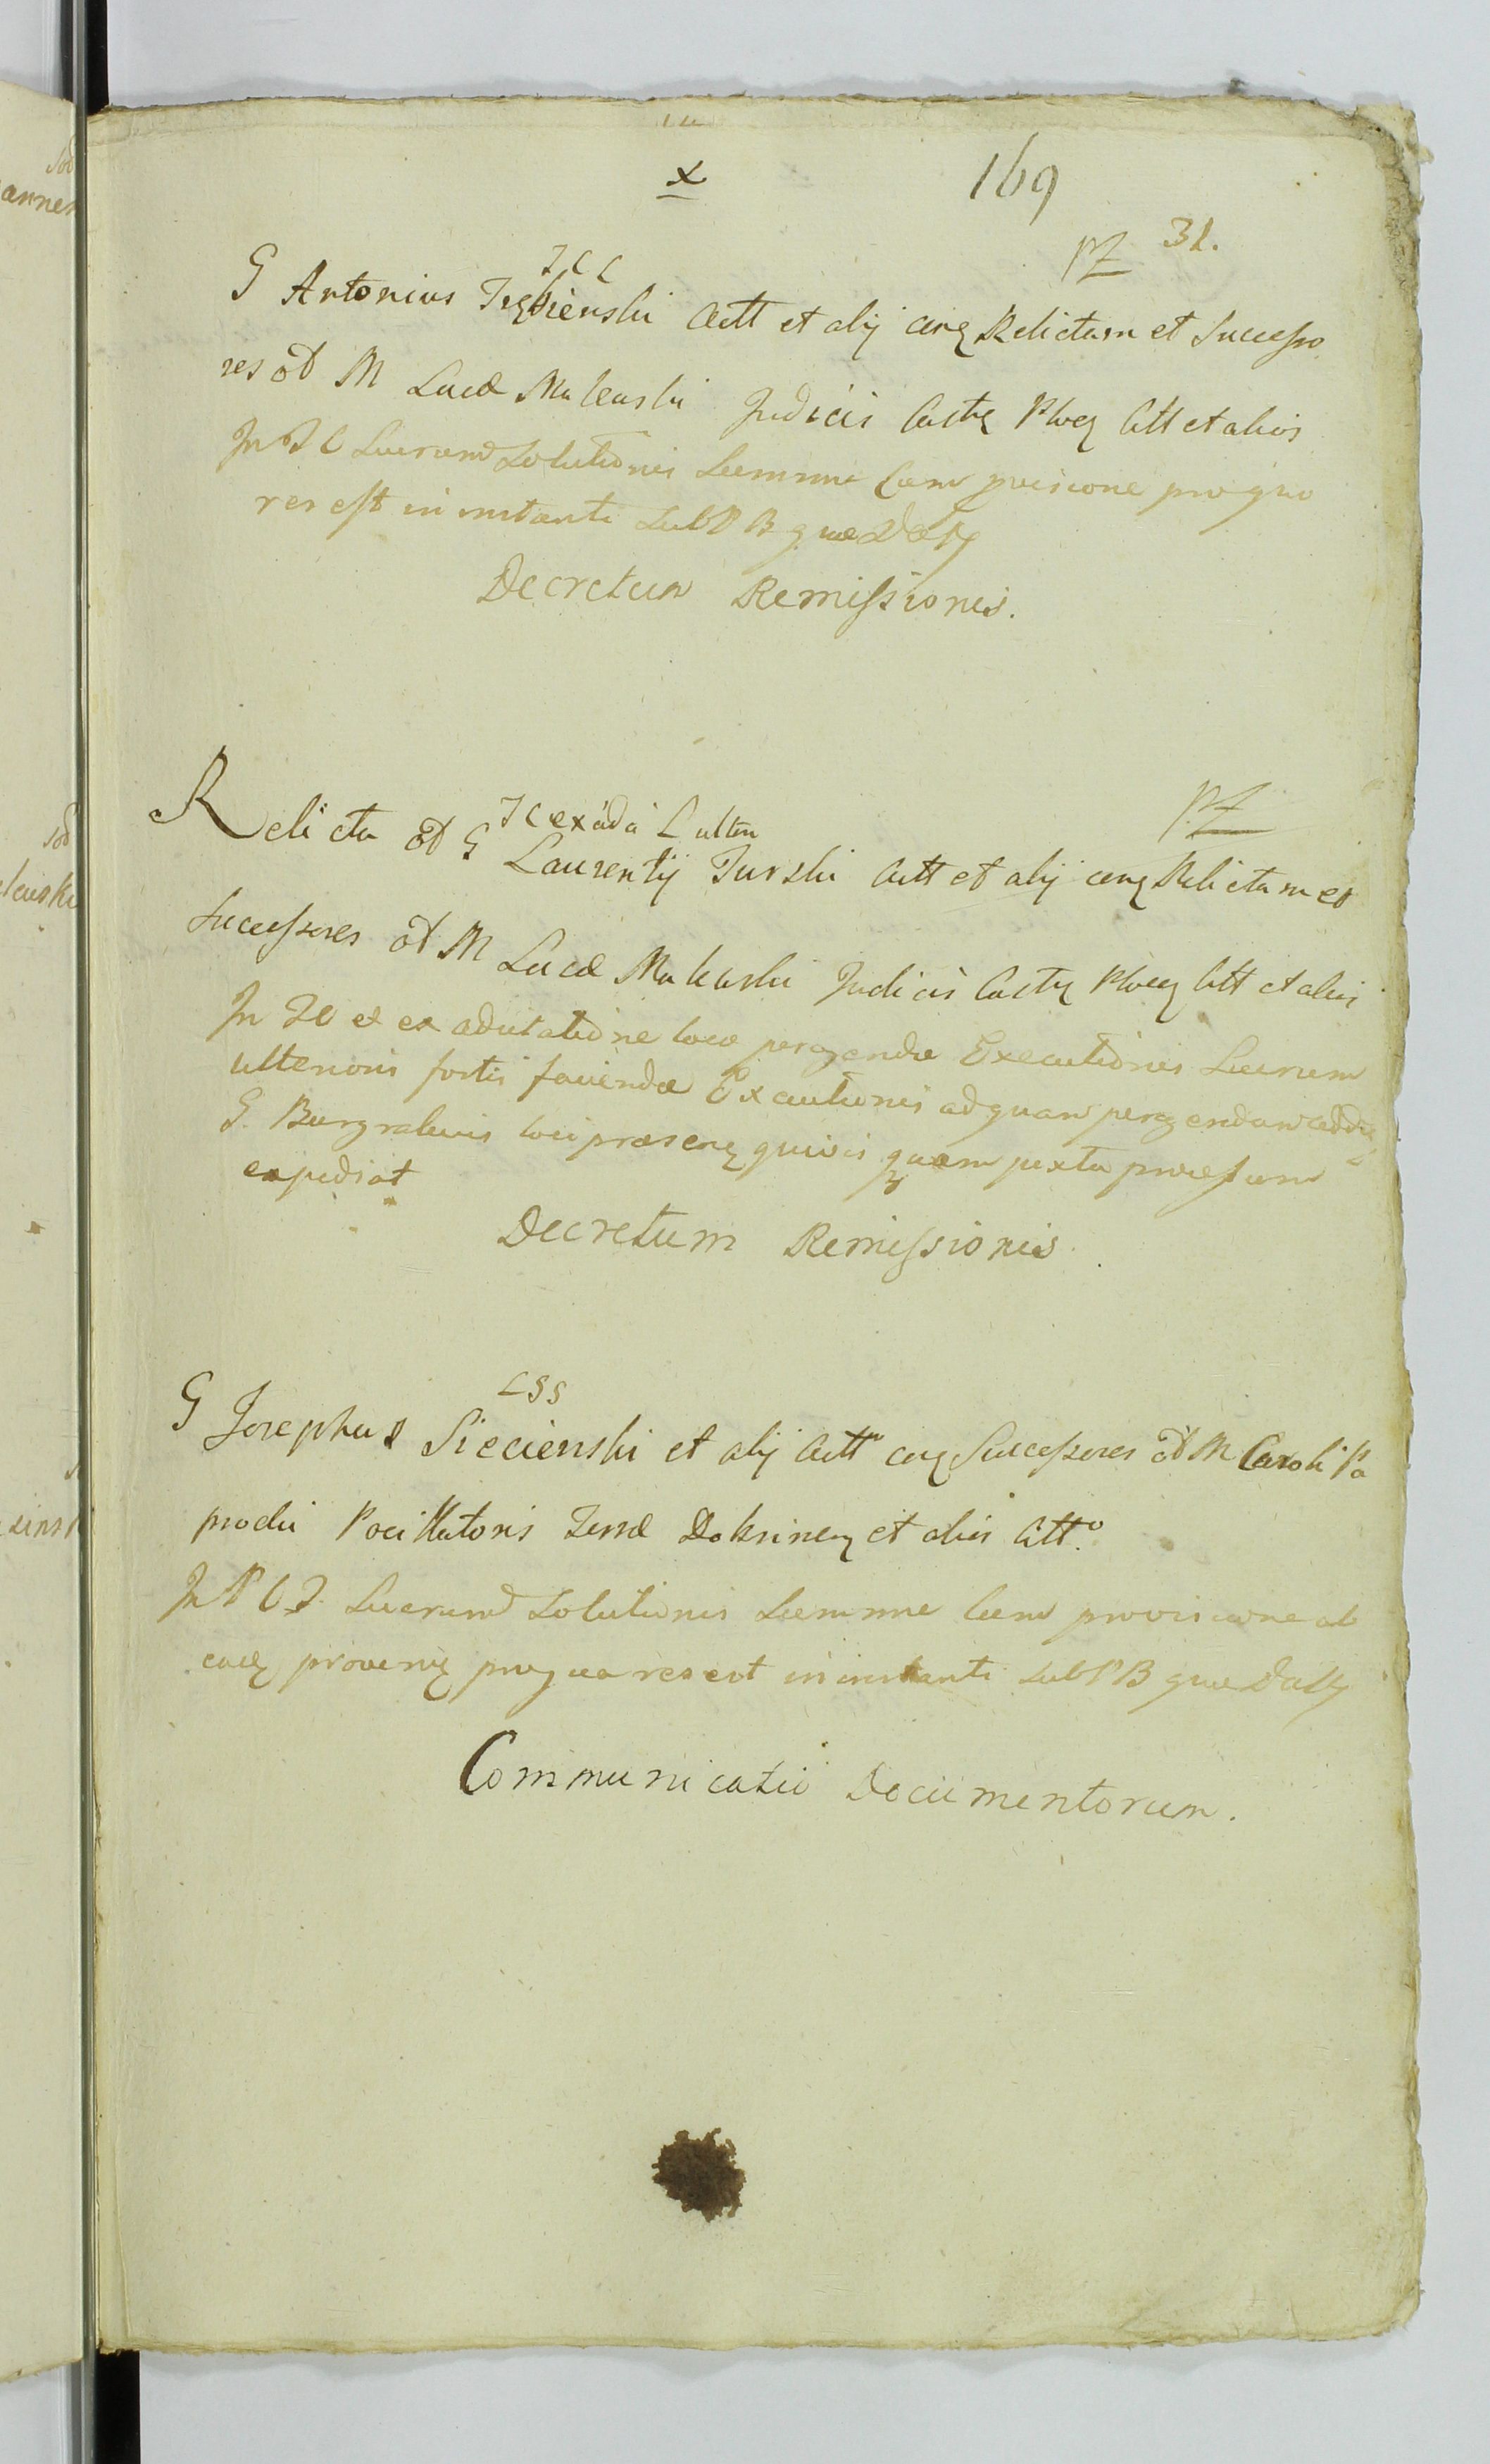 x
169
PZ 31.
J C C
G Antonius Trębienski Actt et alij cirq Relictam et Successo
res ōd M Lucæ Makarski Judicis Castr Plocq Citt et alios
In J C Lucrum Solutionis Summæ Cum provisione pro quo
res est in instanti sub P B quæ
Decretum Remissionis.
PZ
J C ex ada L ulten
Relicta ōd G Laurentij Turski Actt et alij cirq Relictam et
Successores ōd M Lucæ Makarski Judicis Castr Plocq Citt et alios
In J C et ex adcitatione loco peragendæ Executionis Lucrum
ulterioris fortis faciendæ Executionis ad quam peragendam
G. Burgrabius loci præsenq quivis quam juxta processum
expediat
Decretum Remissionis.
L S S
G Josephus Siecienski et alij Actt cirq Successores ōd M Caroli Pa
procki Pocillatoris Terræ Dobrinenq et alios Citt.o
In P C J. Lucrum Solutionis Summæ Cum provisione ab
eaq provenię pro qua res est in instanti sub P B quæ
Communicatio Documentorum.